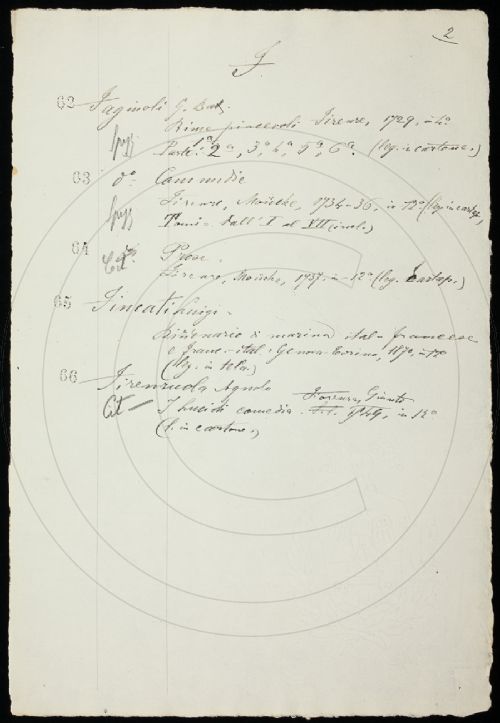 2
F.
62 Fagiuoli G. Bat.
Rime piacevoli Firenze, 1729, in 4°
Parte: 1ª 2ª, 3ª, 4ª, 5ª, 6ª. (leg. in cartone.)
63 d° Commedie
Firenze, Moücke, 1734-36, in 12° (leg in cartap,
Tomi dall' I al VII (incl.)
64 d° Prose.
Firenze, Moücke, 1737 in-12° (leg. cartap.)
65 Fincati Luigi -
Dizionario di marina ital-francese
e franc.-ital. Genova Torino, 1870, in
(leg. in tela.)
66 Firenzuola Agnolo
Cit I lucidi comedia. Fiorenza, Giunti
1549, in 12°
(l. in cartone.)